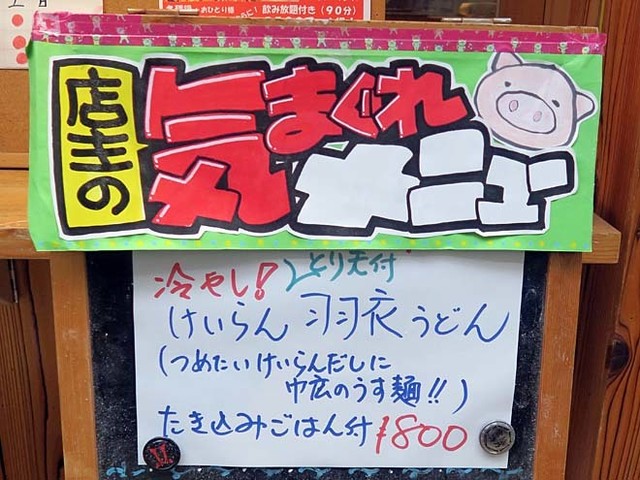 飲み放題付き(90分)
店主の
気まぐれ
メニュー
冷やし! とり天付
けいらん 羽衣うどん
(つめたいけいらんだしに
巾広のうす麺!!)
たき込みごはん付 ¥800